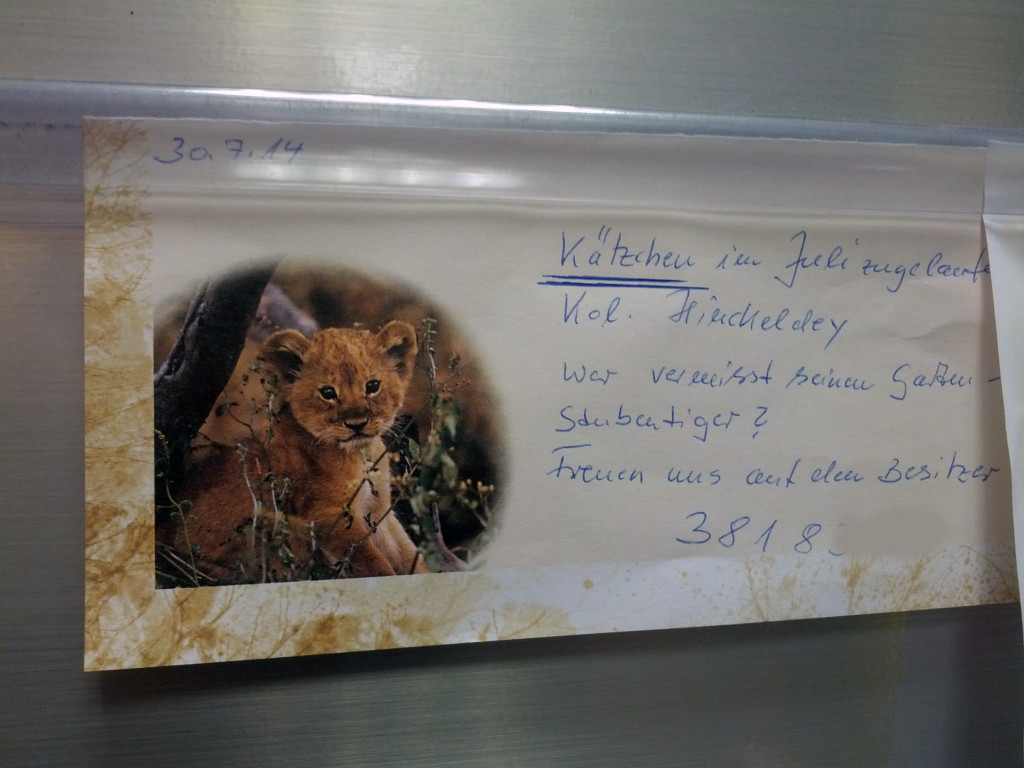 30.7.14
Kätzchen im Juli zugelaufe
Kol. Hinckeldey
Wer vermisst seinen Garten-
Stubentiger?
Freuen uns auf den Besitzer
3818